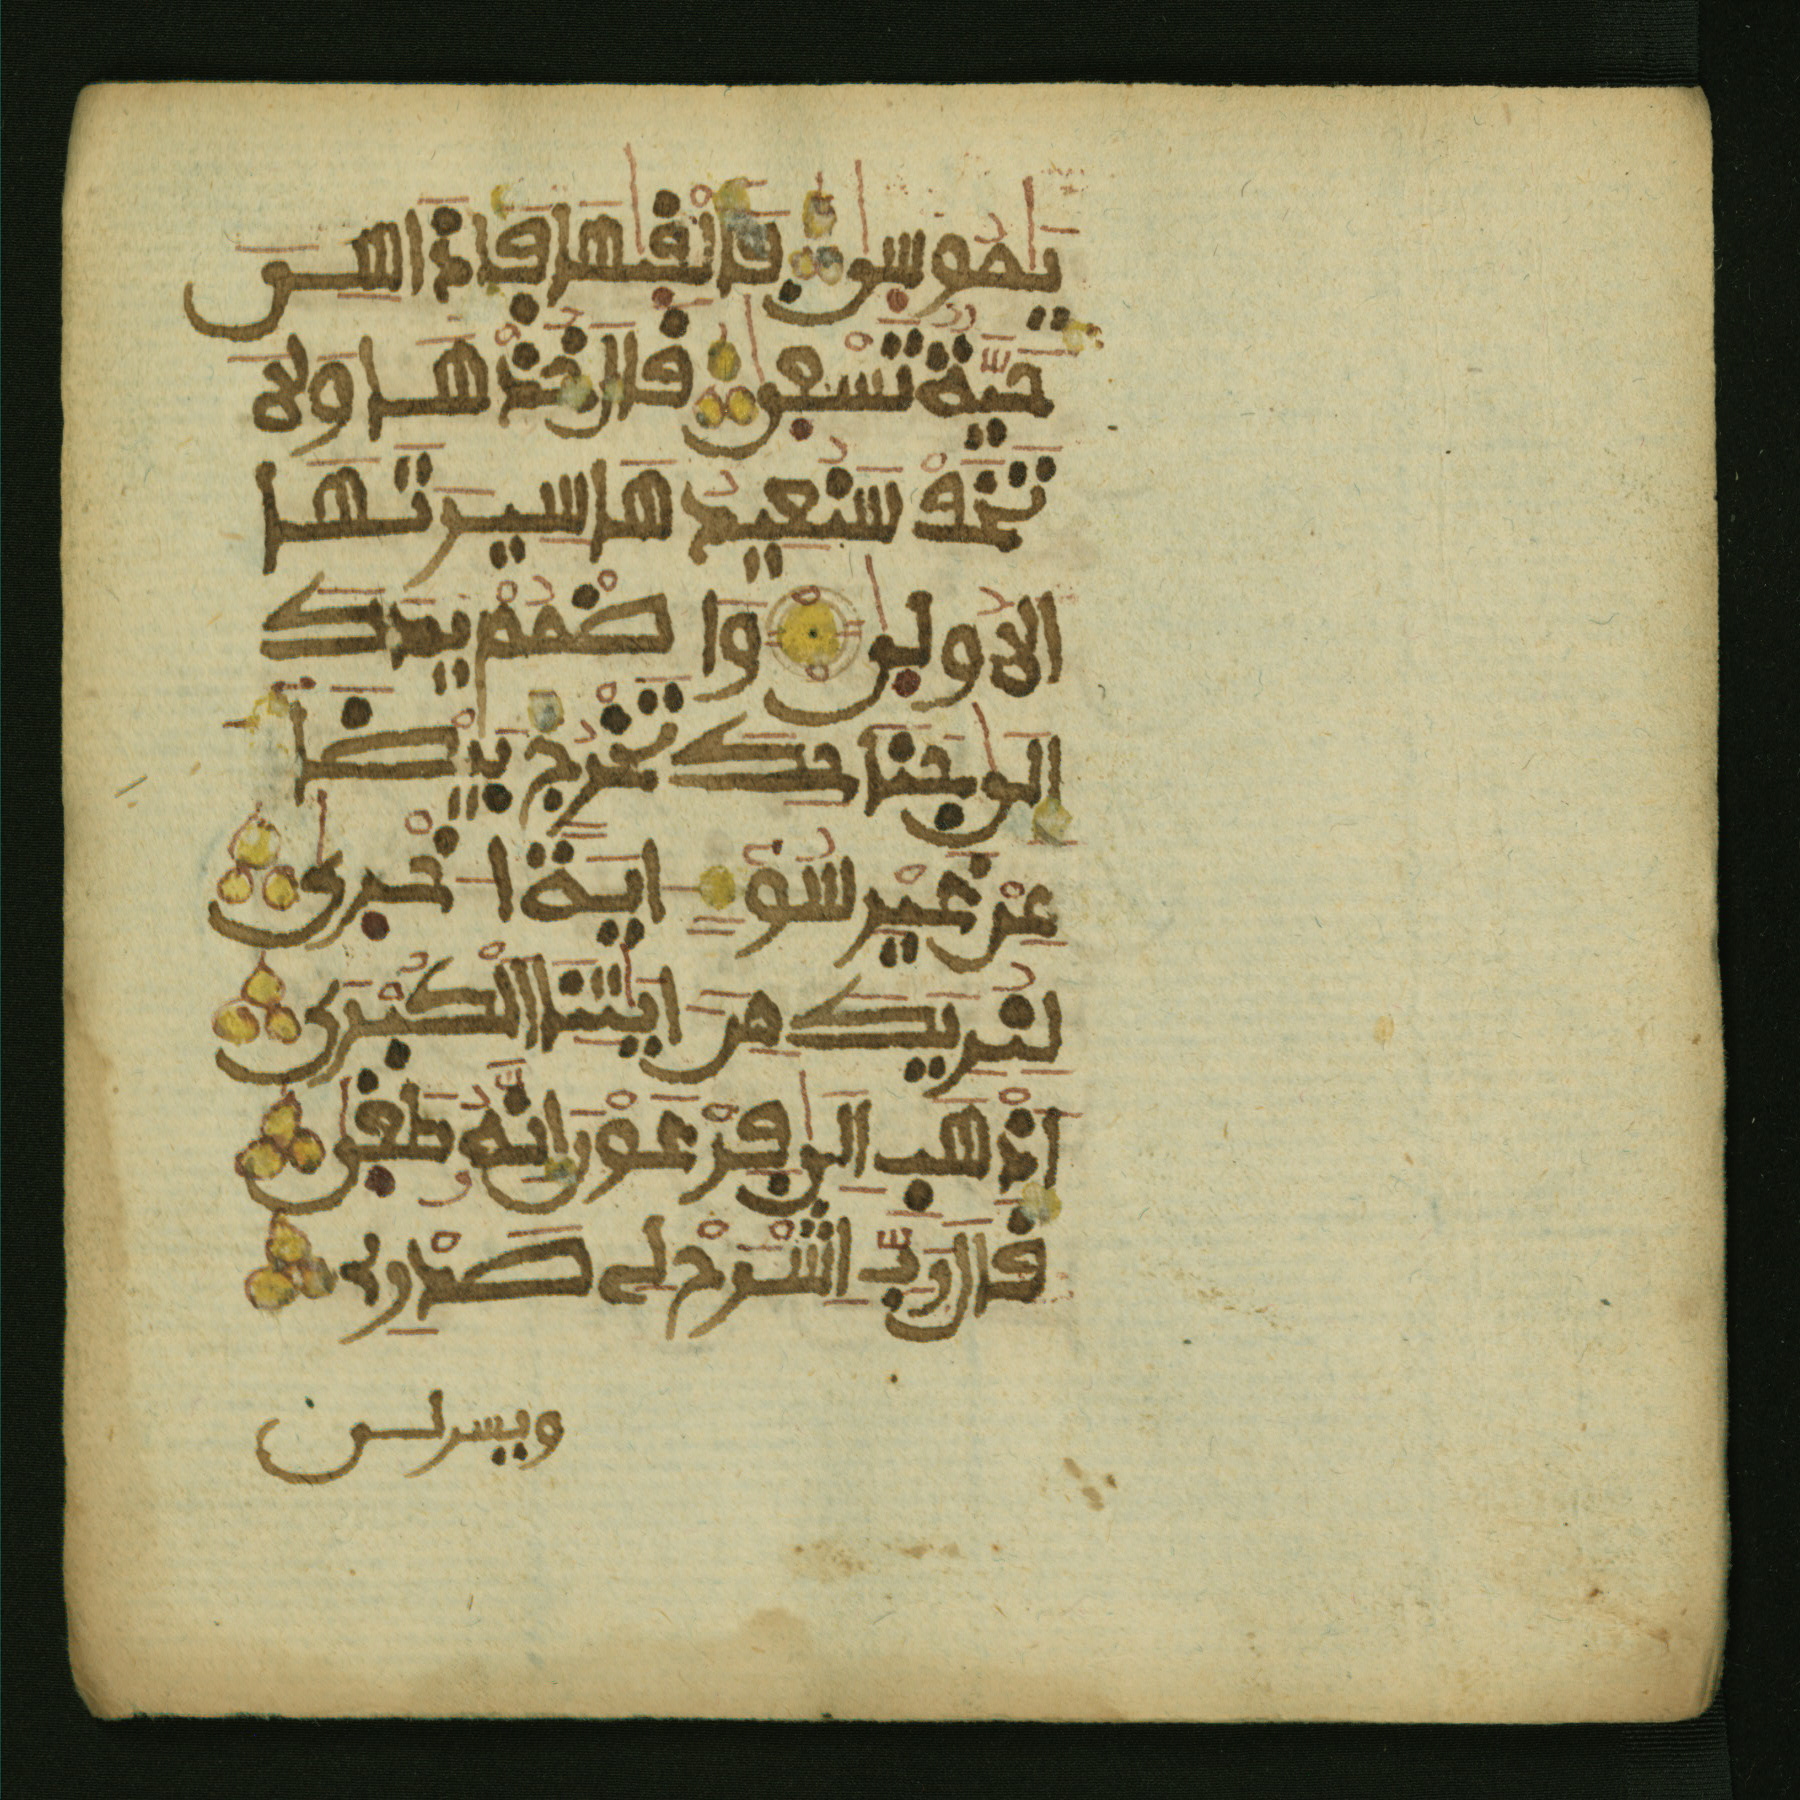 يٰموسى فالقىها فاذا هى
حَيَّةٌ تَسْعى قال خُذْهَا ولا
تَخَفْ سَنُعِيدُهَا سِيرَتَهَا
الاُولى وَاضْمُمْ يَدَكَ
اِلى جَنَاحِكَ تَخْرُجْ بَيْضَا
مِنْ غَيْرِ سُوٓءٍ ايَةً اُخْرى
لِنُرِيَكَ مِنَ ايٰتِنَا الْكُبْرَى
اِذْهَبِ اِلى فِرْعَوْنَ اِنَّهُ طَغى
قَالَ رَبِّ اشْرَحْ لِے صَدْرِے
ويسر لى